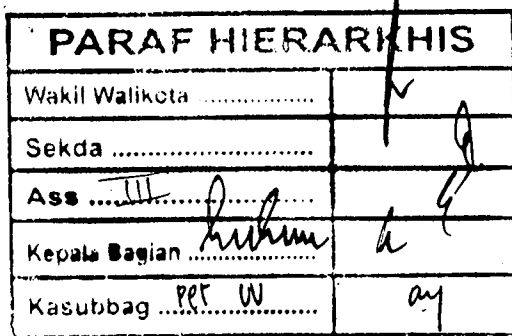 PARAF HIERARKHIS
Wakil Walikota ..................
Sekda ..............................
Ass ....III.........................
Kepala Bagian ..hukum..
Kasubbag ..per UU..